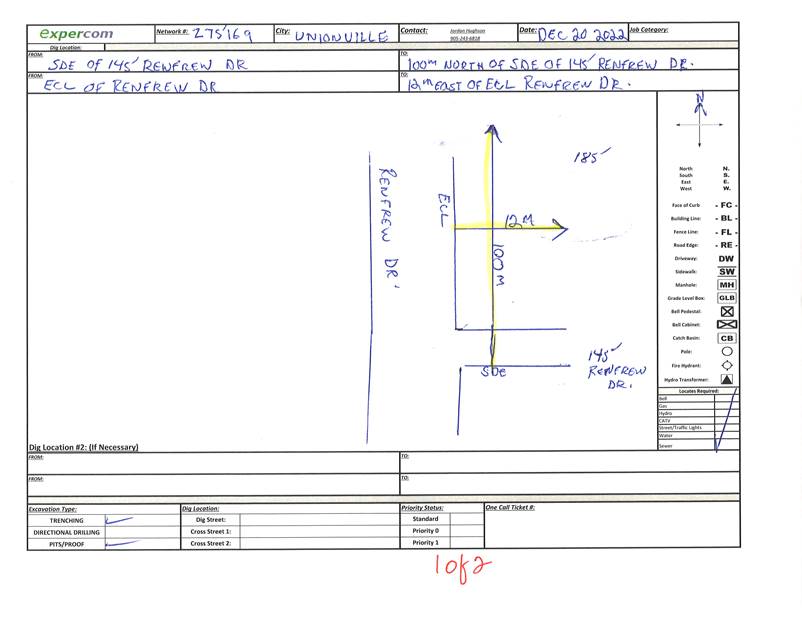 expercom
Network #: 275169
City: UNIONVILLE
Contact: Jordan Hughson
905-243-6818
Date: DEC 20 2022
Job Category:
Dig Location:
FROM: SDE OF 145 RENFREW DR
TO: 100M NORTH OF SDE OF 145 RENFREW DR.
FROM: ECL OF RENFREW DR
TO: 12M EAST OF ECL RENFREW DR.
N
185
RENFREW DR.
ECL
12M
100M
SDE
145
RENFREW
DR.
North N.
South S.
East E.
West W.
Face of Curb - FC -
Building Line: - BL -
Fence Line: - FL -
Road Edge: - RE -
Driveway: DW
Sidewalk: SW
Manhole: MH
Grade Level Box: GLB
Bell Pedestal:
Bell Cabinet:
Catch Basin: CB
Pole:
Fire Hydrant:
Hydro Transformer:
Locates Required:
Bell
Gas
Hydro
CATV
Street/Traffic Lights
Water
Sewer
Dig Location #2: (If Necessary)
FROM:
TO:
FROM:
TO:
Excavation Type:
TRENCHING
DIRECTIONAL DRILLING
PITS/PROOF
Dig Location:
Dig Street:
Cross Street 1:
Cross Street 2:
Priority Status:
Standard
Priority 0
Priority 1
One Call Ticket #:
1 of 2